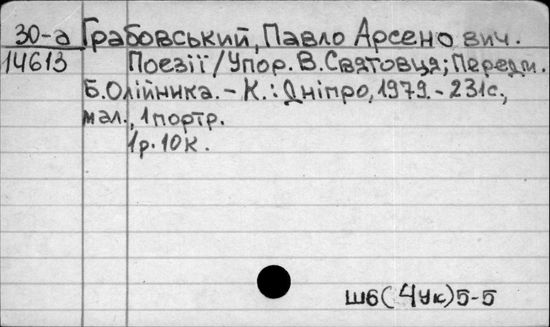 30-а Грабовський, Павло Арсенович.
14613 Поезії/Упор. В. Святовця; Передм.
Б. Олійника. – К.: Дніпро, 1979. – 231с.,
мал., 1 портр.
1р. 10к.
Ш6(4Ук)5-5